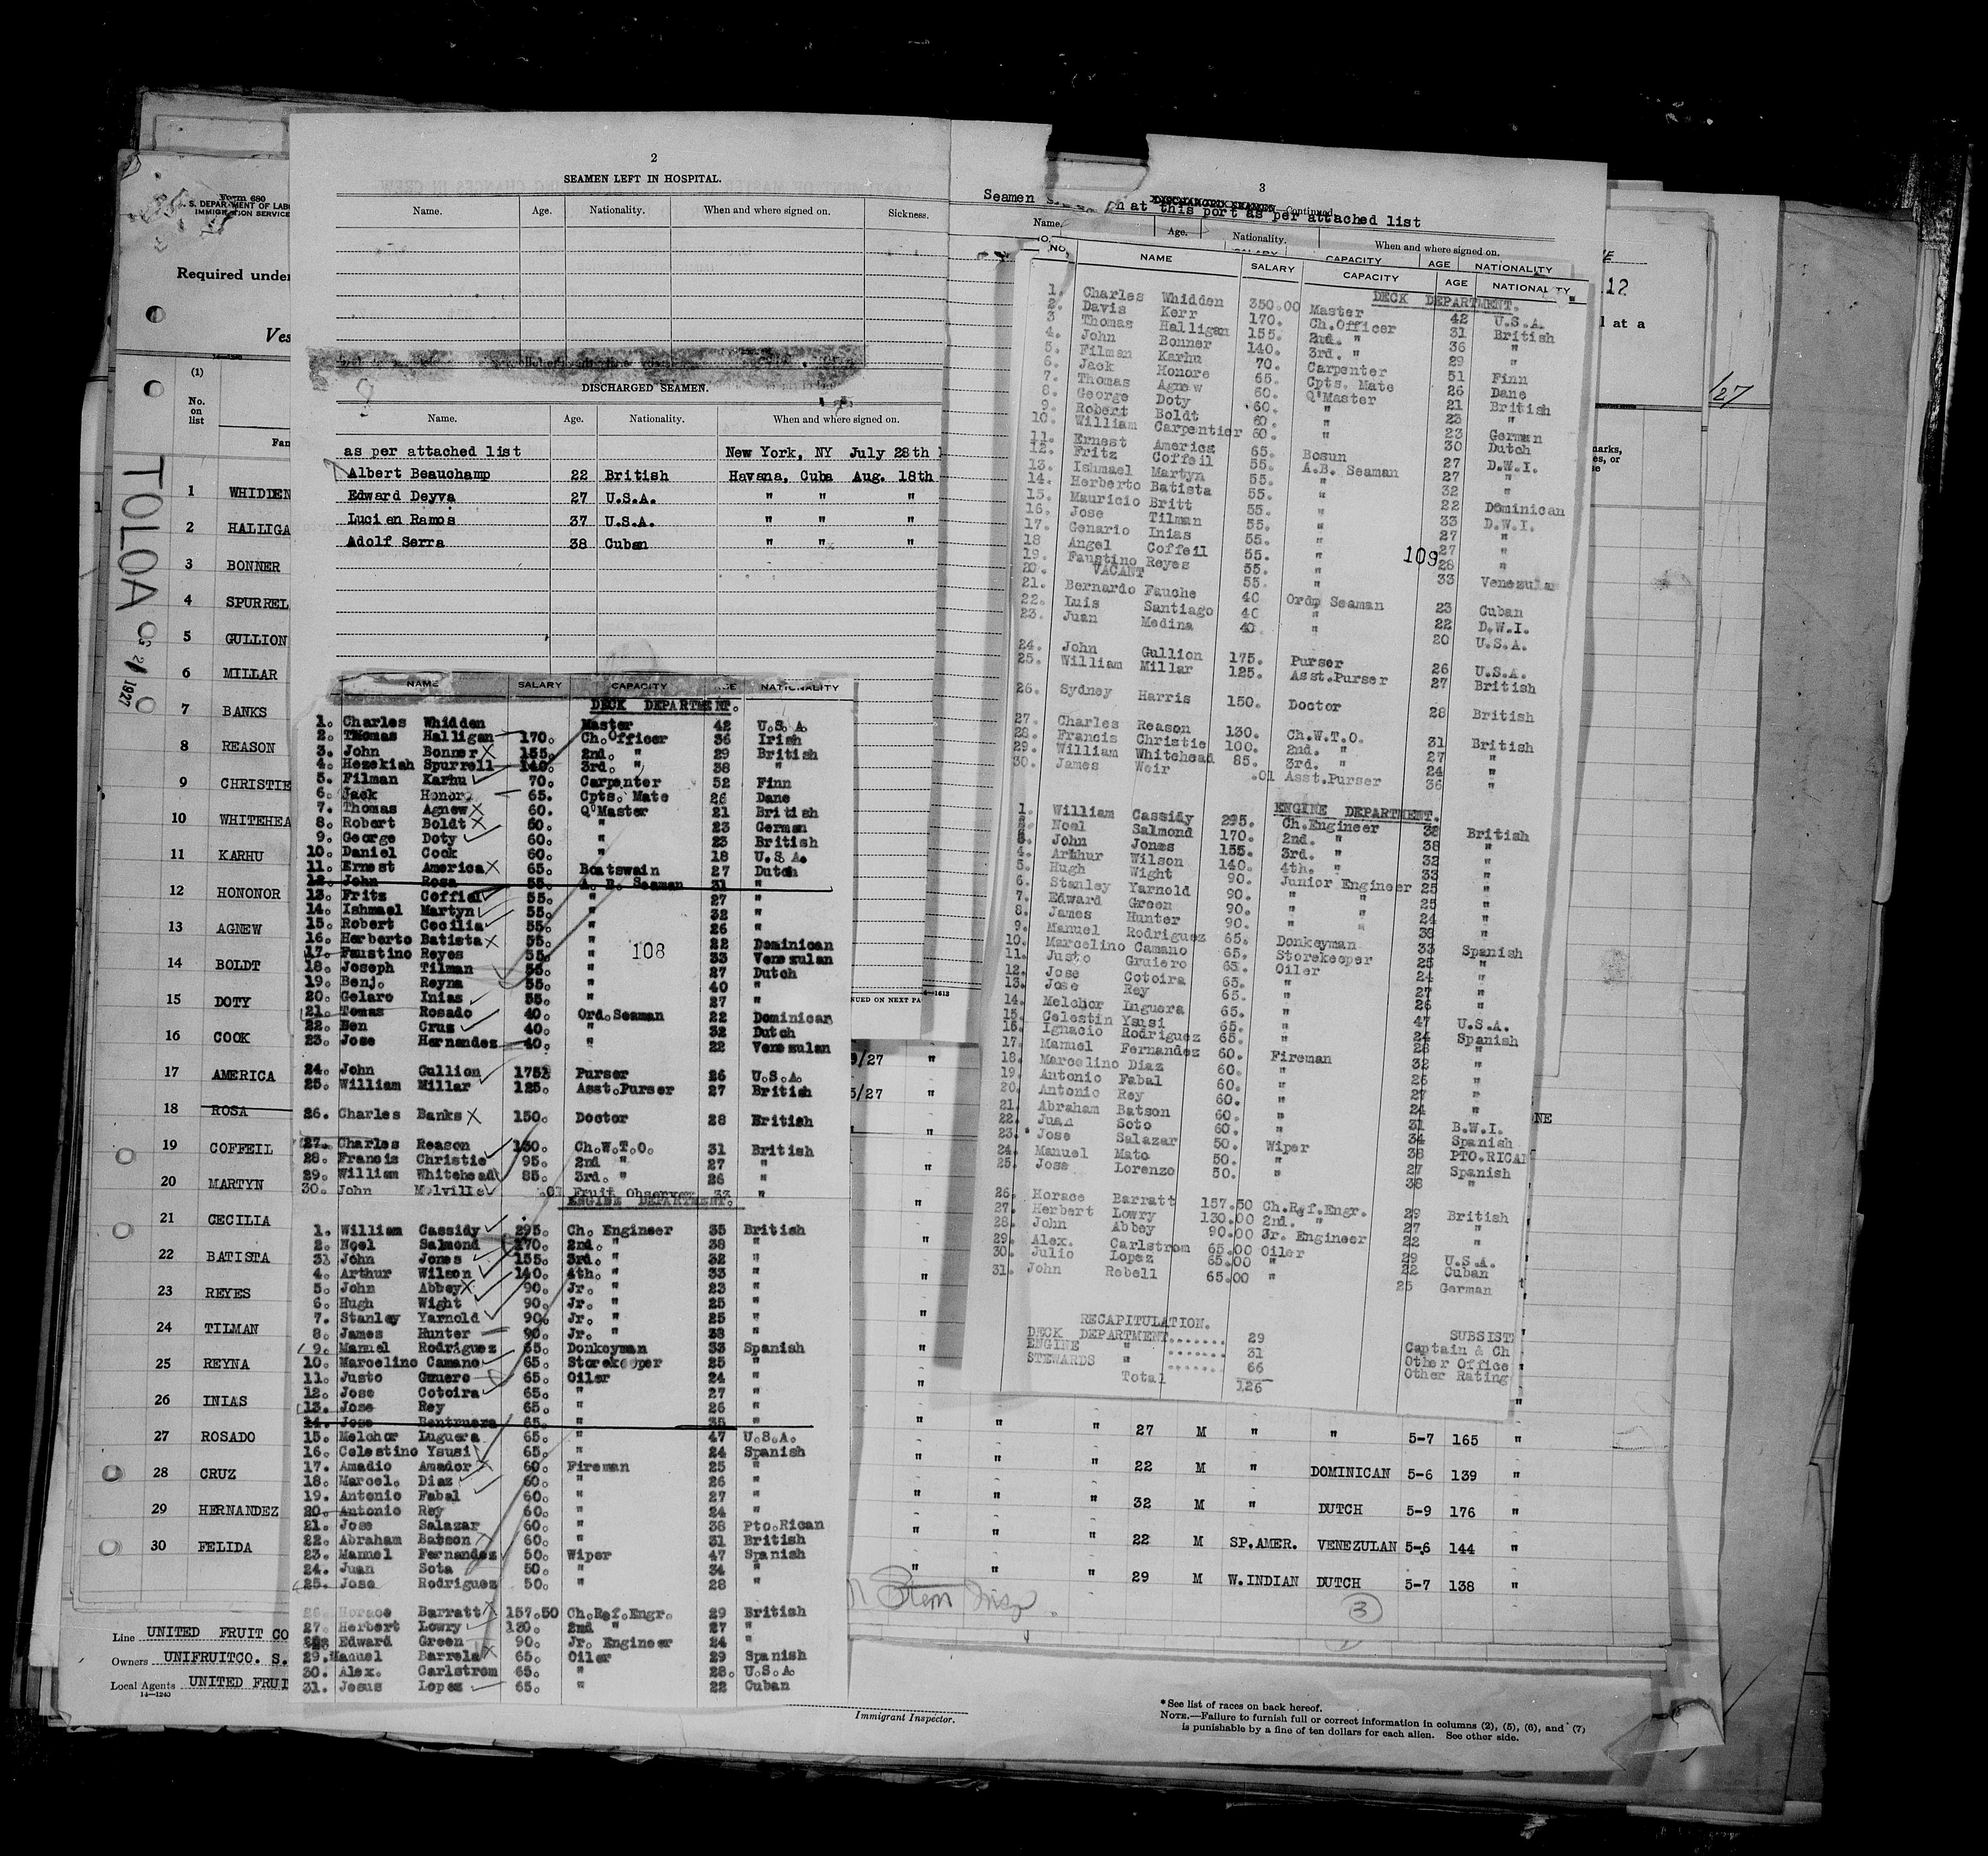 2
SEAMEN LEFT IN HOSPITAL.
Name. Age. Nationality. When and where signed on. Sickness.
DISCHARGED SEAMEN.
Name. Age. Nationality. When and where signed on.
as per attached list New York, NY July 28th
Albert Beauchamp 22 British Havana, Cuba Aug. 18th
Edward Deyva 27 U.S.A. " " "
Lucien Ramos 37 U.S.A. " " "
Adolf Serra 38 Cuban " " "
NAME SALARY CAPACITY NATIONALITY
DECK DEPARTMENT.
1. Charles Whidden Master 42 U.S.A.
2. Thomas Halligan 170. Ch.Officer 36 Irish
3. John Bonner X 155. 2nd. " 29 British
4. Hezekiah Spurrell 140. 3rd. " 38 "
5. Filman Karhu 70. Carpenter 52 Finn
6. Jack Honor 65. Cpts. Mate 26 Dane
7. Thomas Agnew X 60. Q'Master 21 British
8. Robert Boldt X 60. " 23 German
9. George Doty 60. " 23 British
10. Daniel Cook 60. " 18 U.S.A.
11. Ernest America X 65. Boatswain 27 Dutch
12. John Rosa 55. A.B. Seaman 31 "
13. Fritz Coffiel 55. " 27 "
14. Ishmael Martyn 55. " 32 "
15. Robert Cecilia 55. " 26 "
16. Herberto Batista X 55. " 22 Dominican
17. Faustino Reyes 55. " 33 Venezulan
18. Joseph Tilman 55. " 27 Dutch
19. Benj. Reyna 55. " 40 "
20. Gelaro Inias 55. " 27 "
21. Tomas Rosado 40. Ord.Seaman 22 Dominican
22. Ben Cruz 40. " 32 Dutch
23. Jose Hernandez 40. " 22 Venezulan
108
24. John Gullion 175. Purser 26 U.S.A.
25. William Millar 125. Asst.Purser 27 British
26. Charles Banks X 150. Doctor 28 British
27. Charles Reason 130. Ch.W.T.O. 31 British
28. Francis Christie 95. 2nd " 27 "
29. William Whitehead 85. 3rd. " 26 "
30. John Melville .01 Fruit Observer 33 "
ENGINE DEPARTMENT.
1. William Cassidy 295. Ch. Engineer 35 British
2. Noel Salmond 170. 2nd. " 38 "
3. John Jones 155. 3rd. " 32 "
4. Arthur Wilson 140. 4th. " 33 "
5. John Abbey X 90. Jr. " 23 "
6. Hugh Wight 90. Jr. " 25 "
7. Stanley Yarnold 90. Jr. " 25 "
8. James Hunter 90. Jr. " 38 "
9. Manuel Rodriguez 65. Donkeyman 33 Spanish
10. Marcelino Camano 65. Storekeeper 25 "
11. Justo Gruero 65. Oiler 24 "
12. Jose Cotoira 65. " 27 "
13. Jose Rey 65. " 26 "
14. Jose Bentruera 65. " 35 "
15. Melchor Luguera 65. " 47 U.S.A.
16. Celestino Ysusi 65. " 24 Spanish
17. Amadio Amador 60. Fireman 25 "
18. Marcel. Diaz 60. " 26 "
19. Antonio Fabal 60. " 27 "
20. Antonio Rey 60. " 24 "
21. Jose Salazar 60. " 38 Pto.Rican
22. Abraham Batson 60. " 31 British
23. Manuel Fernandez 50. Wiper 47 Spanish
24. Juan Sota 50. " 34 "
25. Jose Rodriguez 50. " 28 "
26. Horace Barratt X 157.50 Ch.Ref.Engr. 29 British
27. Herbert Lowry 130. 2nd " 27 "
Edward Green 90. Jr. Engineer 24 "
29. Manuel Barrela X 65. Oiler 29 Spanish
30. Alex. Carlstrom 65. " 28. U.S.A.
31. Jesus Lopez 65. " 22 Cuban
3
DISCHARGED SEAMEN—Continued
Seamen at this port as per attached list
Name. Age. Nationality. When and where signed on.
CAPACITY AGE NATIONALITY
NO. NAME SALARY CAPACITY AGE NATIONALITY
DECK DEPARTMENT.
1. Charles Whidden 350.00 Master 42 U.S.A.
2. Davis Kerr 170. Ch.Officer 31 British
3 Thomas Halligan 155. 2nd. " 36 "
4. John Bonner 140. 3rd. " 29 "
5. Filman Karhu 70. Carpenter 51 Finn
6. Jack Honore 65. Cpts. Mate 26 Dane
7. Thomas Agnew 60. Q'Master 21 British
8. George Doty 60. " 23 "
9. Robert Boldt 60. " 23 German
10. William Carpentier 60. " 30 Dutch
11. Ernest America 65. Bosun 27 D.W.I.
12. Fritz Coffeil 55. A.B. Seaman 27 "
13. Ishmael Martyn 55. " 32 "
14. Herberto Batista 55. " 22 Dominican
15. Mauricio Britt 55. " 33 D.W.I.
16. Jose Tilman 55. " 27 "
17. Genario Inias 55. " 27 "
18 Angel Coffeil 55. " 28 "
19. Faustino Reyes 55. " 33 Venezulan
20. VACANT 55. "
21. Bernardo Fauche 40 Ord. Seaman 23 Cuban
22. Luis Santiago 40 " 22 D.W.I.
23. Juan Medina 40. " 20 U.S.A.
109
24. John Gullion 175. Purser 26 U.S.A.
25. William Millar 125. Asst.Purser 27 British
26. Sydney Harris 150. Doctor 28 British
27. Charles Reason 130. Ch.W.T.O. 31 British
28. Francis Christie 100. 2nd. " 27 "
29. William Whitehead 85. 3rd. " 24 "
30. James Weir .01 Asst.Purser 36 "
ENGINE DEPARTMENT.
1. William Cassidy 295. Ch.Engineer 38 British
2. Noel Salmond 170. 2nd. " 38 "
3. John Jones 155. 3rd. " 32 "
4. Arthur Wilson 140. 4th. " 33 "
5. Hugh Wight 90. Junior Engineer 25 "
6. Stanley Yarnold 90. " " 25 "
7. Edward Green 90. " " 24 "
8. James Hunter 90. " " 38 "
9. Manuel Rodriguez 65. Donkeyman 33 Spanish
10. Marcelino Camano 65. Storekeeper 25 "
11. Justo Gruiero 65. Oiler 24 "
12. Jose Cotoira 65. " 27 "
13. Jose Rey 65. " 26 "
14. Melchor Luguera 65. " 47 U.S.A.
15. Celestin Ysusi 65. " 24 Spanish
16. Ignacio Rodriguez 65. " 28 "
17. Manuel Fernandez 60. Fireman 32 "
18. Marcelino Diaz 60. " 26 "
19. Antonio Fabal 60. " 27 "
20. Antonio Rey 60. " 24 "
21. Abraham Batson 60. " 31 B.W.I.
22. Juan Soto 60. " 34 Spanish
23. Jose Salazar 50. Wiper 38 PTO.RICAN
24. Manuel Mato 50. " 27 Spanish
25. Jose Lorenzo 50. " 38 "
26. Horace Barratt 157.50 Ch.Ref.Engr. 29 British
27. Herbert Lowry 130.00 2nd. " 27 "
28. John Abbey 90.00 Jr. Engineer 22 "
29. Alex. Carlstrom 65.00 Oiler 29 U.S.A.
30. Julio Lopez 65.00 " 22 Cuban
31. John Rebell 65.00 " 25 German
RECAPITULATION.
DECK DEPARTMENT....... 29 SUBSIST
ENGINE " ....... 31 Captain & Ch
STEWARDS " ....... 66 Other Office
Total 126 Other Rating
Form 680
U. S. DEPARTMENT OF LAB
IMMIGRATION SERVICE
Required under
Ves
(1)
No.
on
list
Fam
TOLOA
2 1927
1 WHIDDEN
2 HALLIGA
3 BONNER
4 SPURREL
5 GULLION
6 MILLAR
7 BANKS
8 REASON
9 CHRISTIE
10 WHITEHEA
11 KARHU
12 HONONOR
13 AGNEW
14 BOLDT
15 DOTY
16 COOK
17 AMERICA
18 ROSA
19 COFFEIL
20 MARTYN
21 CECILIA
22 BATISTA
23 REYES
24 TILMAN
25 REYNA
26 INIAS
27 ROSADO
28 CRUZ
29 HERNANDEZ
30 FELIDA
Line UNITED FRUIT CO
Owners UNIFRUITCO. S.
Local Agents UNITED FRUI
14—1243
12
l at a
/27
narks,
es, or
se
NUED ON NEXT PA
—1613
/27 "
5/27 "
NE
" " " 27 M " " 5-7 165 "
" " " 22 M " DOMINICAN 5-6 139 "
" " " 32 M " DUTCH 5-9 176 "
" " 22 M SP.AMER. VENEZULAN 5-6 144 "
" " " 29 M W.INDIAN DUTCH 5-7 138 "
3
Immigrant Inspector.
*See list of races on back hereof.
NOTE.—Failure to furnish full or correct information in columns (2), (5), (6), and (7)
is punishable by a fine of ten dollars for each alien. See other side.